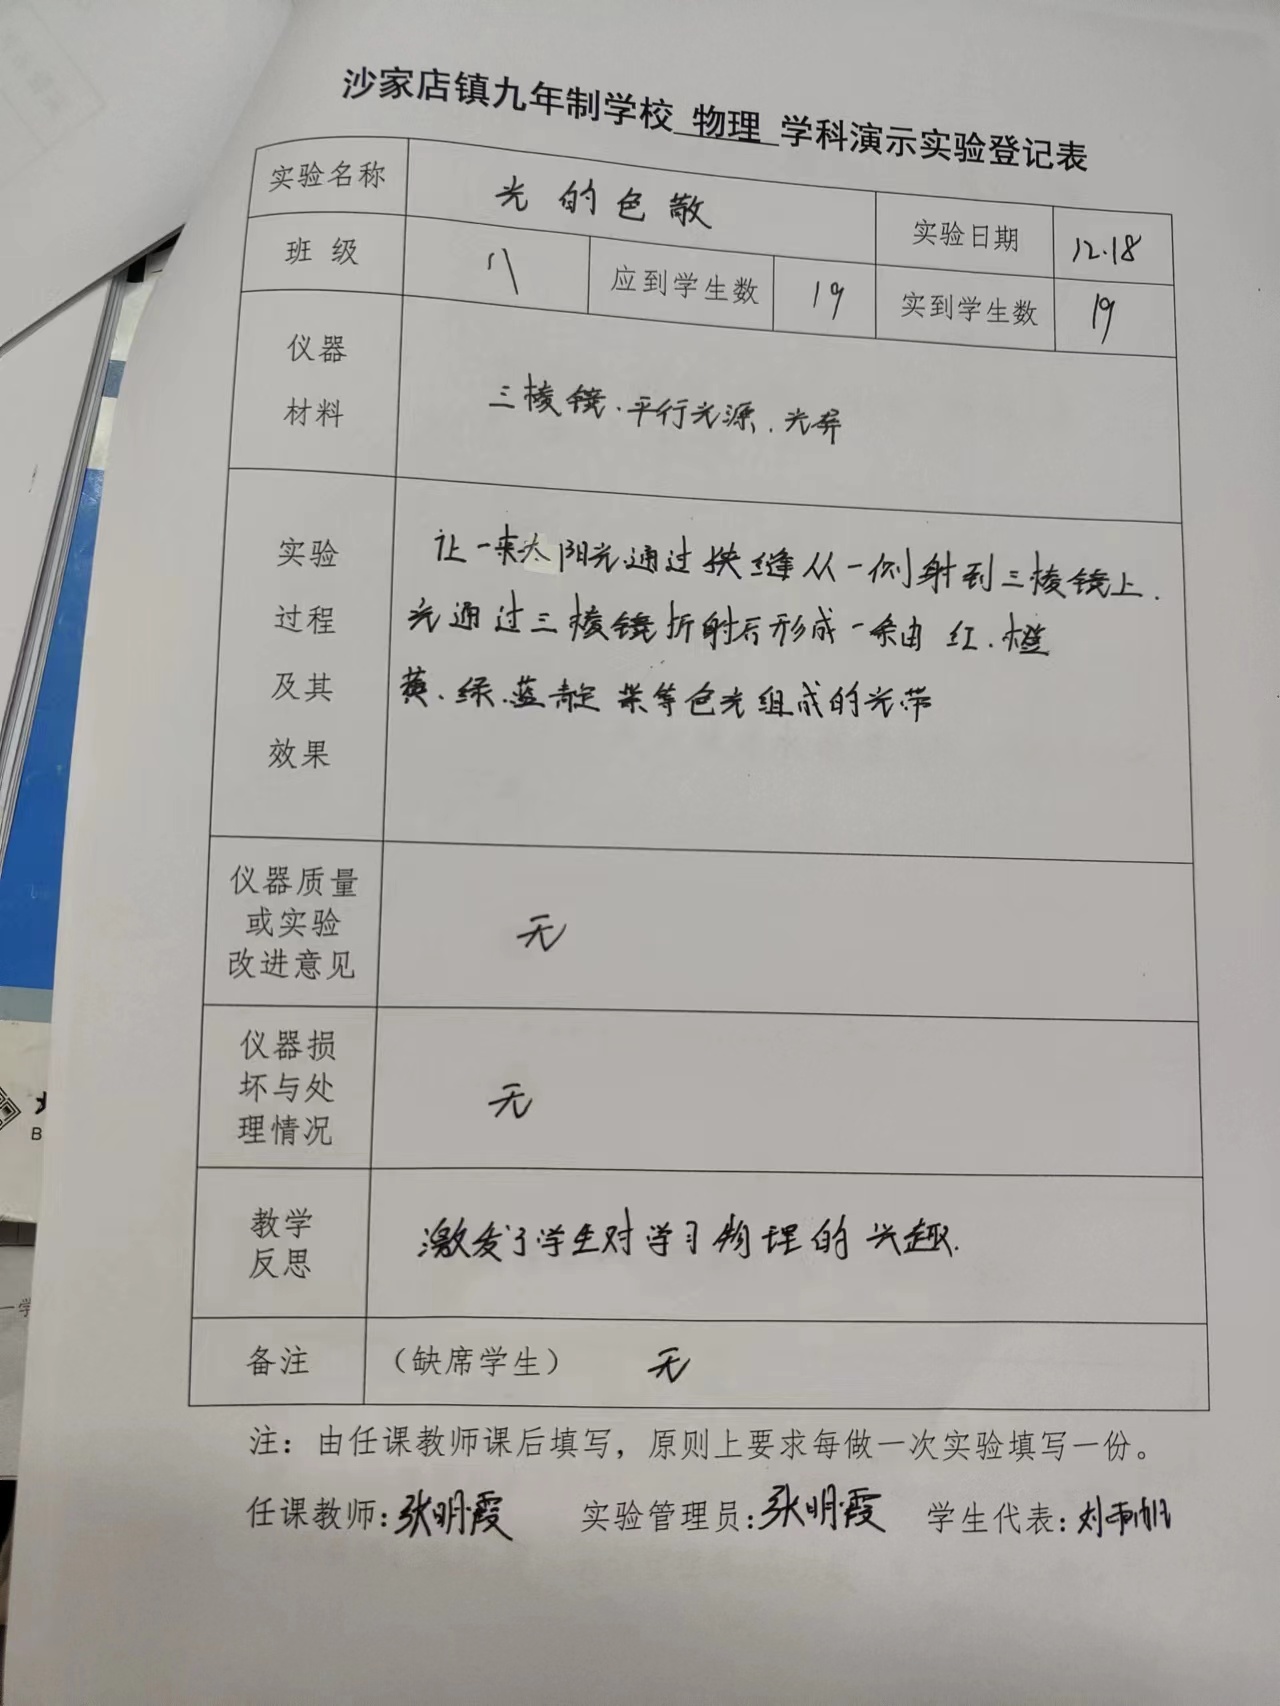 沙家店镇九年制学校 物理 学科演示实验登记表
实验名称 光的色散 实验日期 12.18
班级 八 应到学生数 19 实到学生数 19
仪器
材料
三棱镜.平行光源.光屏
实验
过程
及其
效果
让一束太阳光通过狭缝从一侧射到三棱镜上.
光通过三棱镜折射后形成一条由红.橙
黄.绿.蓝靛紫等色光组成的光带
仪器质量
或实验
改进意见
无
仪器损
坏与处
理情况
无
教学
反思
激发了学生对学习物理的兴趣.
备注 (缺席学生) 无
注：由任课教师课后填写，原则上要求每做一次实验填写一份。
任课教师:张明霞 实验管理员:张明霞 学生代表:刘雨
B
一学